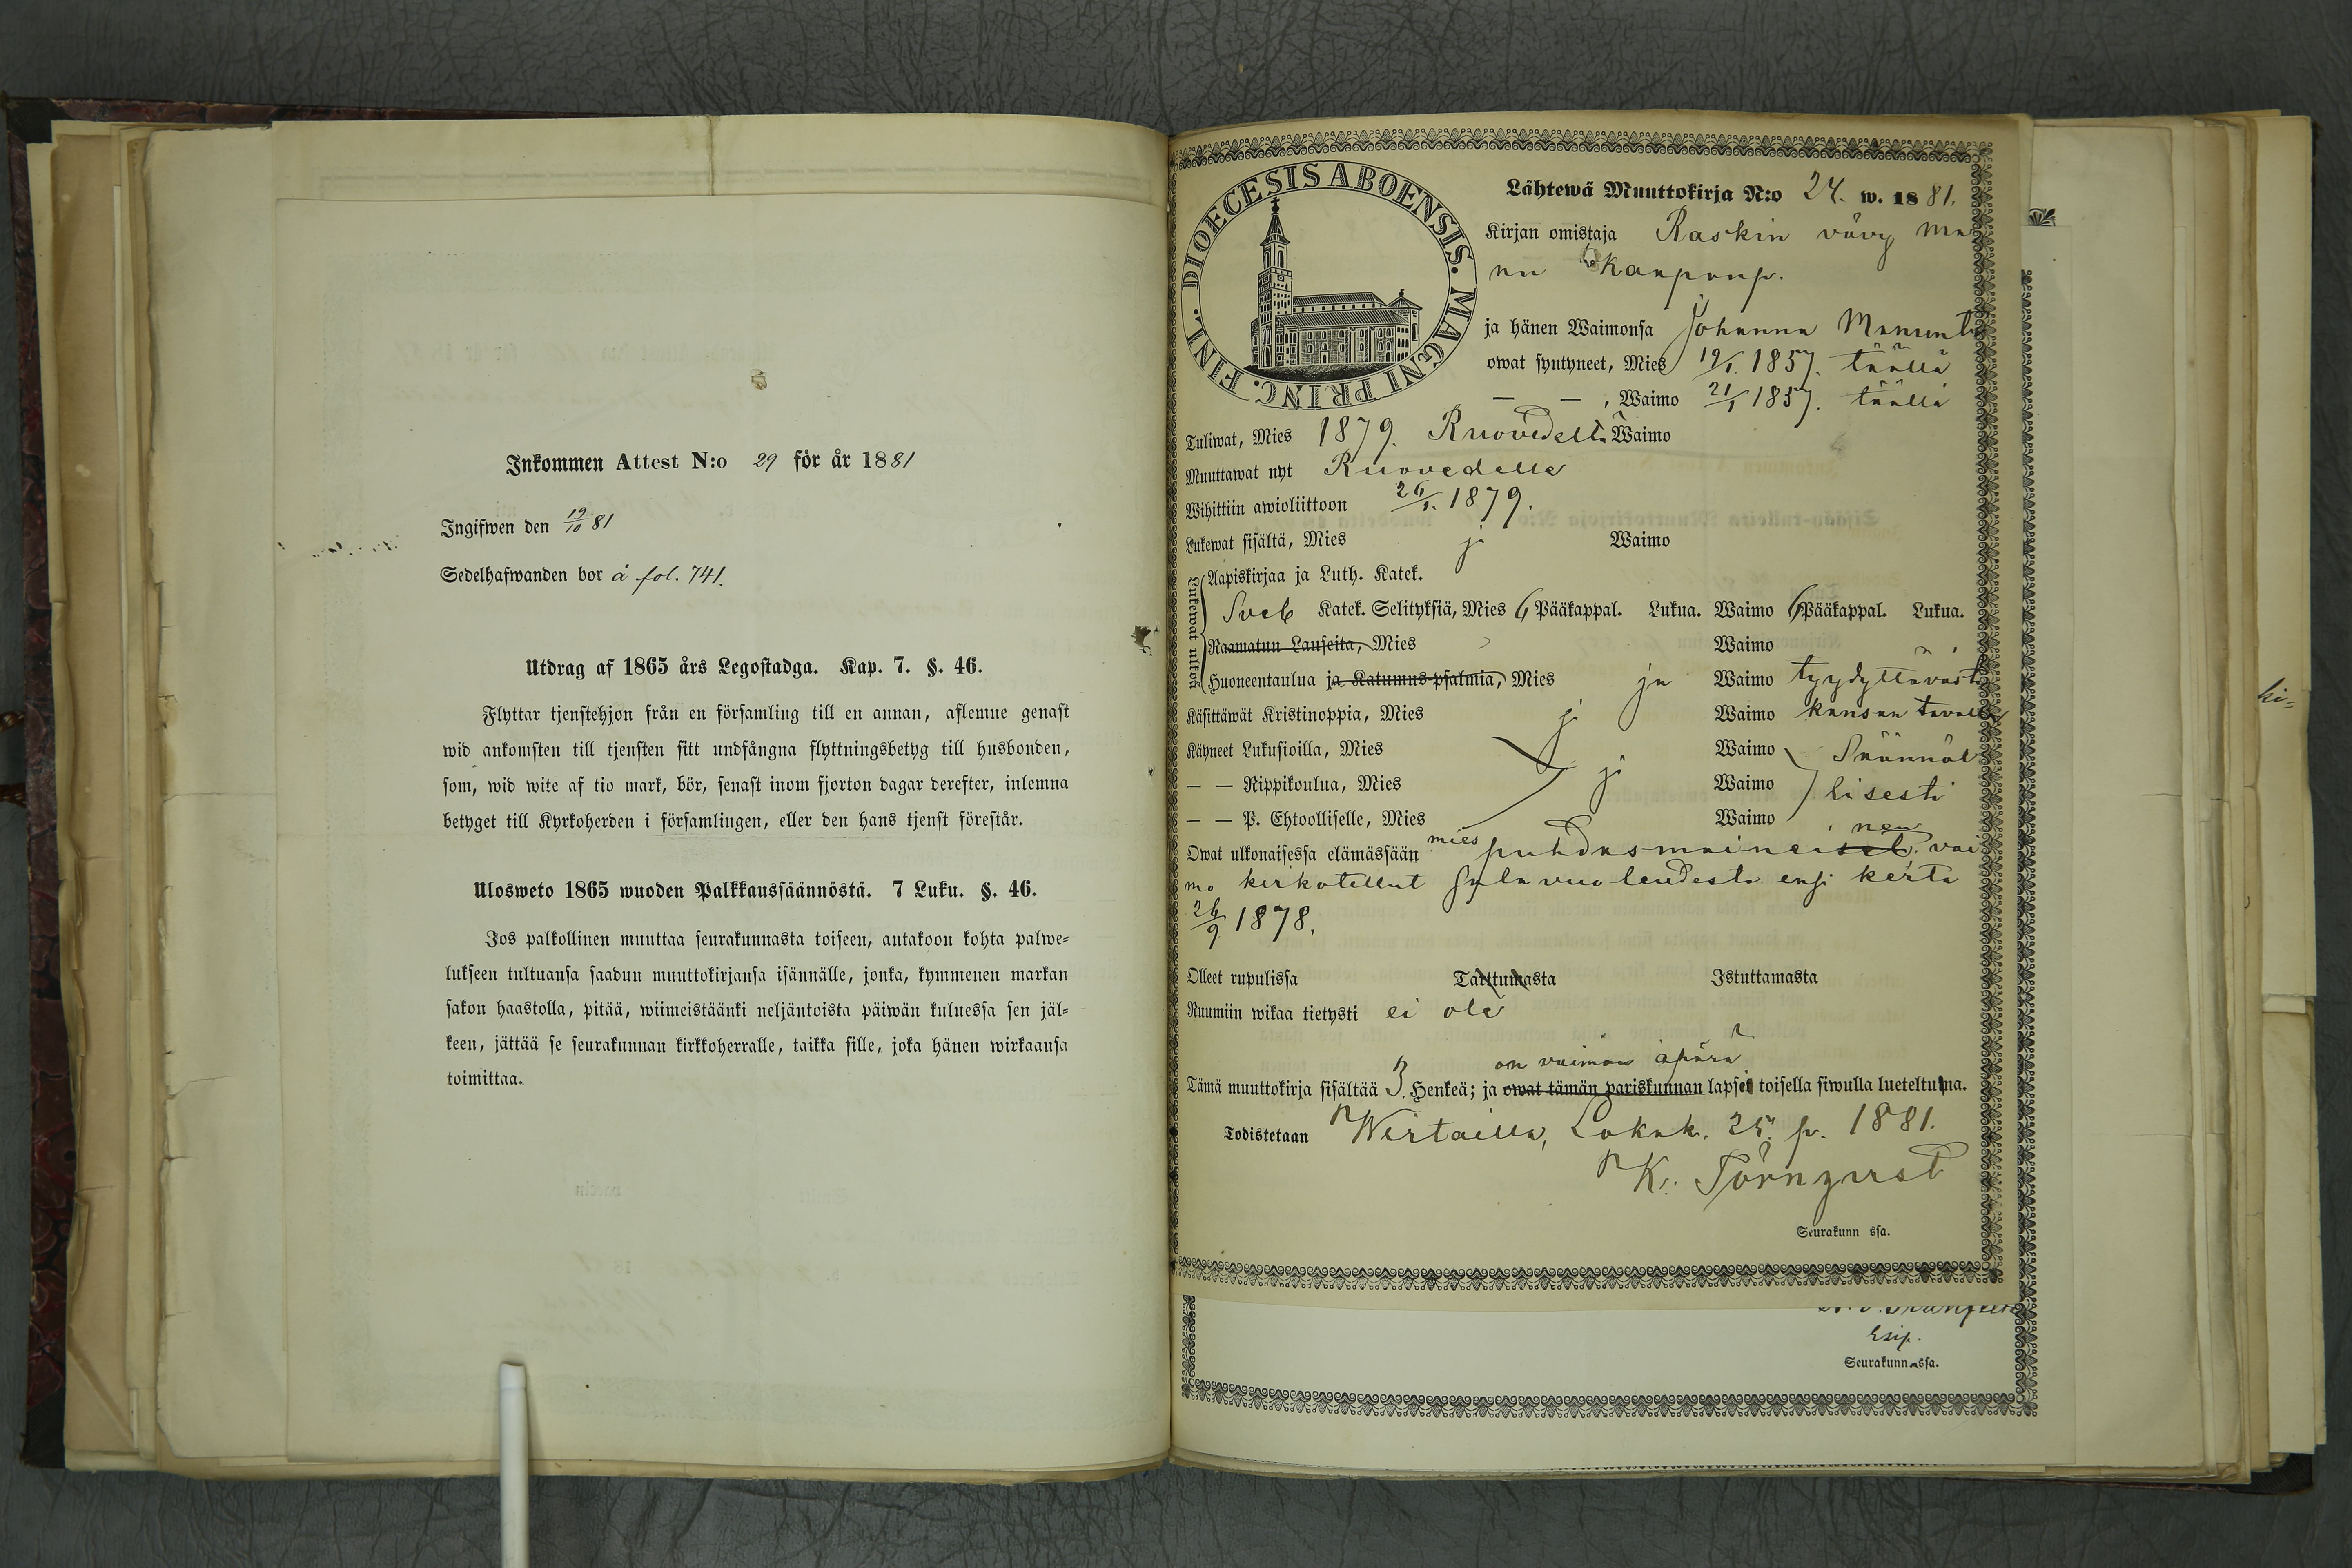 Inkommen Attest N:o 29 för år 1881
Ingifwen den 19/10 81
Sedelhafwanden bor å fol. 741.
Utdrag af 1865 års Legostadga. Kap. 7. §. 46.
Flyttar tjenstehjon från en församling till en annan, aflemne genast
wid ankomsten till tjensten sitt undfångna flyttningsbetyg till husbonden,
som, wid wite af tio mark, bör, senast inom fjorton dagar derefter, inlemna
betyget till Kyrkoherden i församlingen, eller den hans tjenst förestår.
Ulosweto 1865 wuoden Palkkaussäännöstä. 7 Luku. §. 46.
Jos palkollinen muuttaa seurakunnasta toiseen, antakoon kohta palwe-
lukseen tultuansa saadun muuttokirjansa isännälle, jonka, kymmenen markan
sakon haastolla, pitää, wiimeistäänki neljäntoista päiwän kuluessa sen jäl-
keen, jättää se seurakunnan kirkkoherralle, taikka sille, joka hänen wirkaansa
toimittaa.
DIOECESIS ABOENSIS. MAGNI PRINC. FINL.
Lähtewä Muuttokirja N:o 24. w. 1881.
Kirjan omistaja Raskin vävy
ja hänen Waimonsa Johanna
owat syntyneet, Mies 19/1. 1857. täällä
— — , Waimo 21/1 1857. täällä
Tuliwat, Mies 1879. Ruovedeltä Waimo
Muuttawat nyt Ruovedelle
Wihittiin awioliittoon 26/1. 1879.
Lukewat sisältä, Mies ja Waimo
Lukewat ulkoa
Aapiskirjaa ja Luth. Katek.
Sveb Katek. Selityksiä, Mies 6 Pääkappal. Lukua. Waimo 6 Pääkappal. Lukua.
Raamatun Lauseita, Mies Waimo
Huoneentaulua ja Katumus-psalmia, Mies ja Waimo tyydyttävästi
Käsittäwät Kristinoppia, Mies ja Waimo kansan tavalla
Käyneet Lukusioilla, Mies Waimo Säännöl
— — Rippikoulua, Mies ja Waimo lisesti
— — P. Ehtoolliselle, Mies Waimo
Owat ulkonaisessa elämässään mies puhdasmaineiset nen vai
mo kirkotellut salavuoteudesta ensi kerta
26/9 1878.
Olleet rupulissa Tarttumasta Istuttamasta
Ruumiin wikaa tietysti ei ole
on vaimon äpärä
Tämä muuttokirja sisältää 3 Henkeä; ja owat tämän pariskunnan lapset toisella siwulla lueteltuina.
Todistetaan Wirtailla, Lokak. 25. p. 1881.
K. Törnqvist
Seurakunn ssa.
Esip.
Seurakunnassa.
ki-